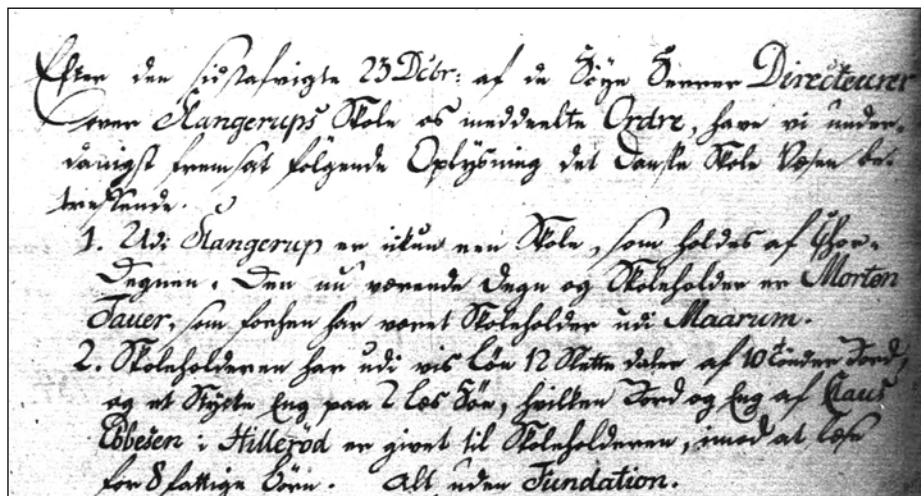 Efter den sidstafvigte 23 Dcbr: af de Höye Herrer Directeurer
over Slangerups Skole os meddeelte Ordre, have vi under-
danigst fremsat följende Oplysning det Danske Skole Væsen be-
treffende.
1. Udi Slangerup er ikun een Skole, som holdes af Chor-
Degnen. Den nu værende Degn og Skoleholder er Morten
Fauer, som forhen har været Skoleholder udi Maarum.
2. Skoleholderen har udi vis Lön 12 Slette daler af 10 tönder Jord,
og et Stycke Eng paa 2 Læs Höe, hvilken Jord og Eng af Claus
Ebbesen i Hilleröd er givet til Skoleholderen, imod at læse
for 8 fattige Börn. Alt uden Fundation.